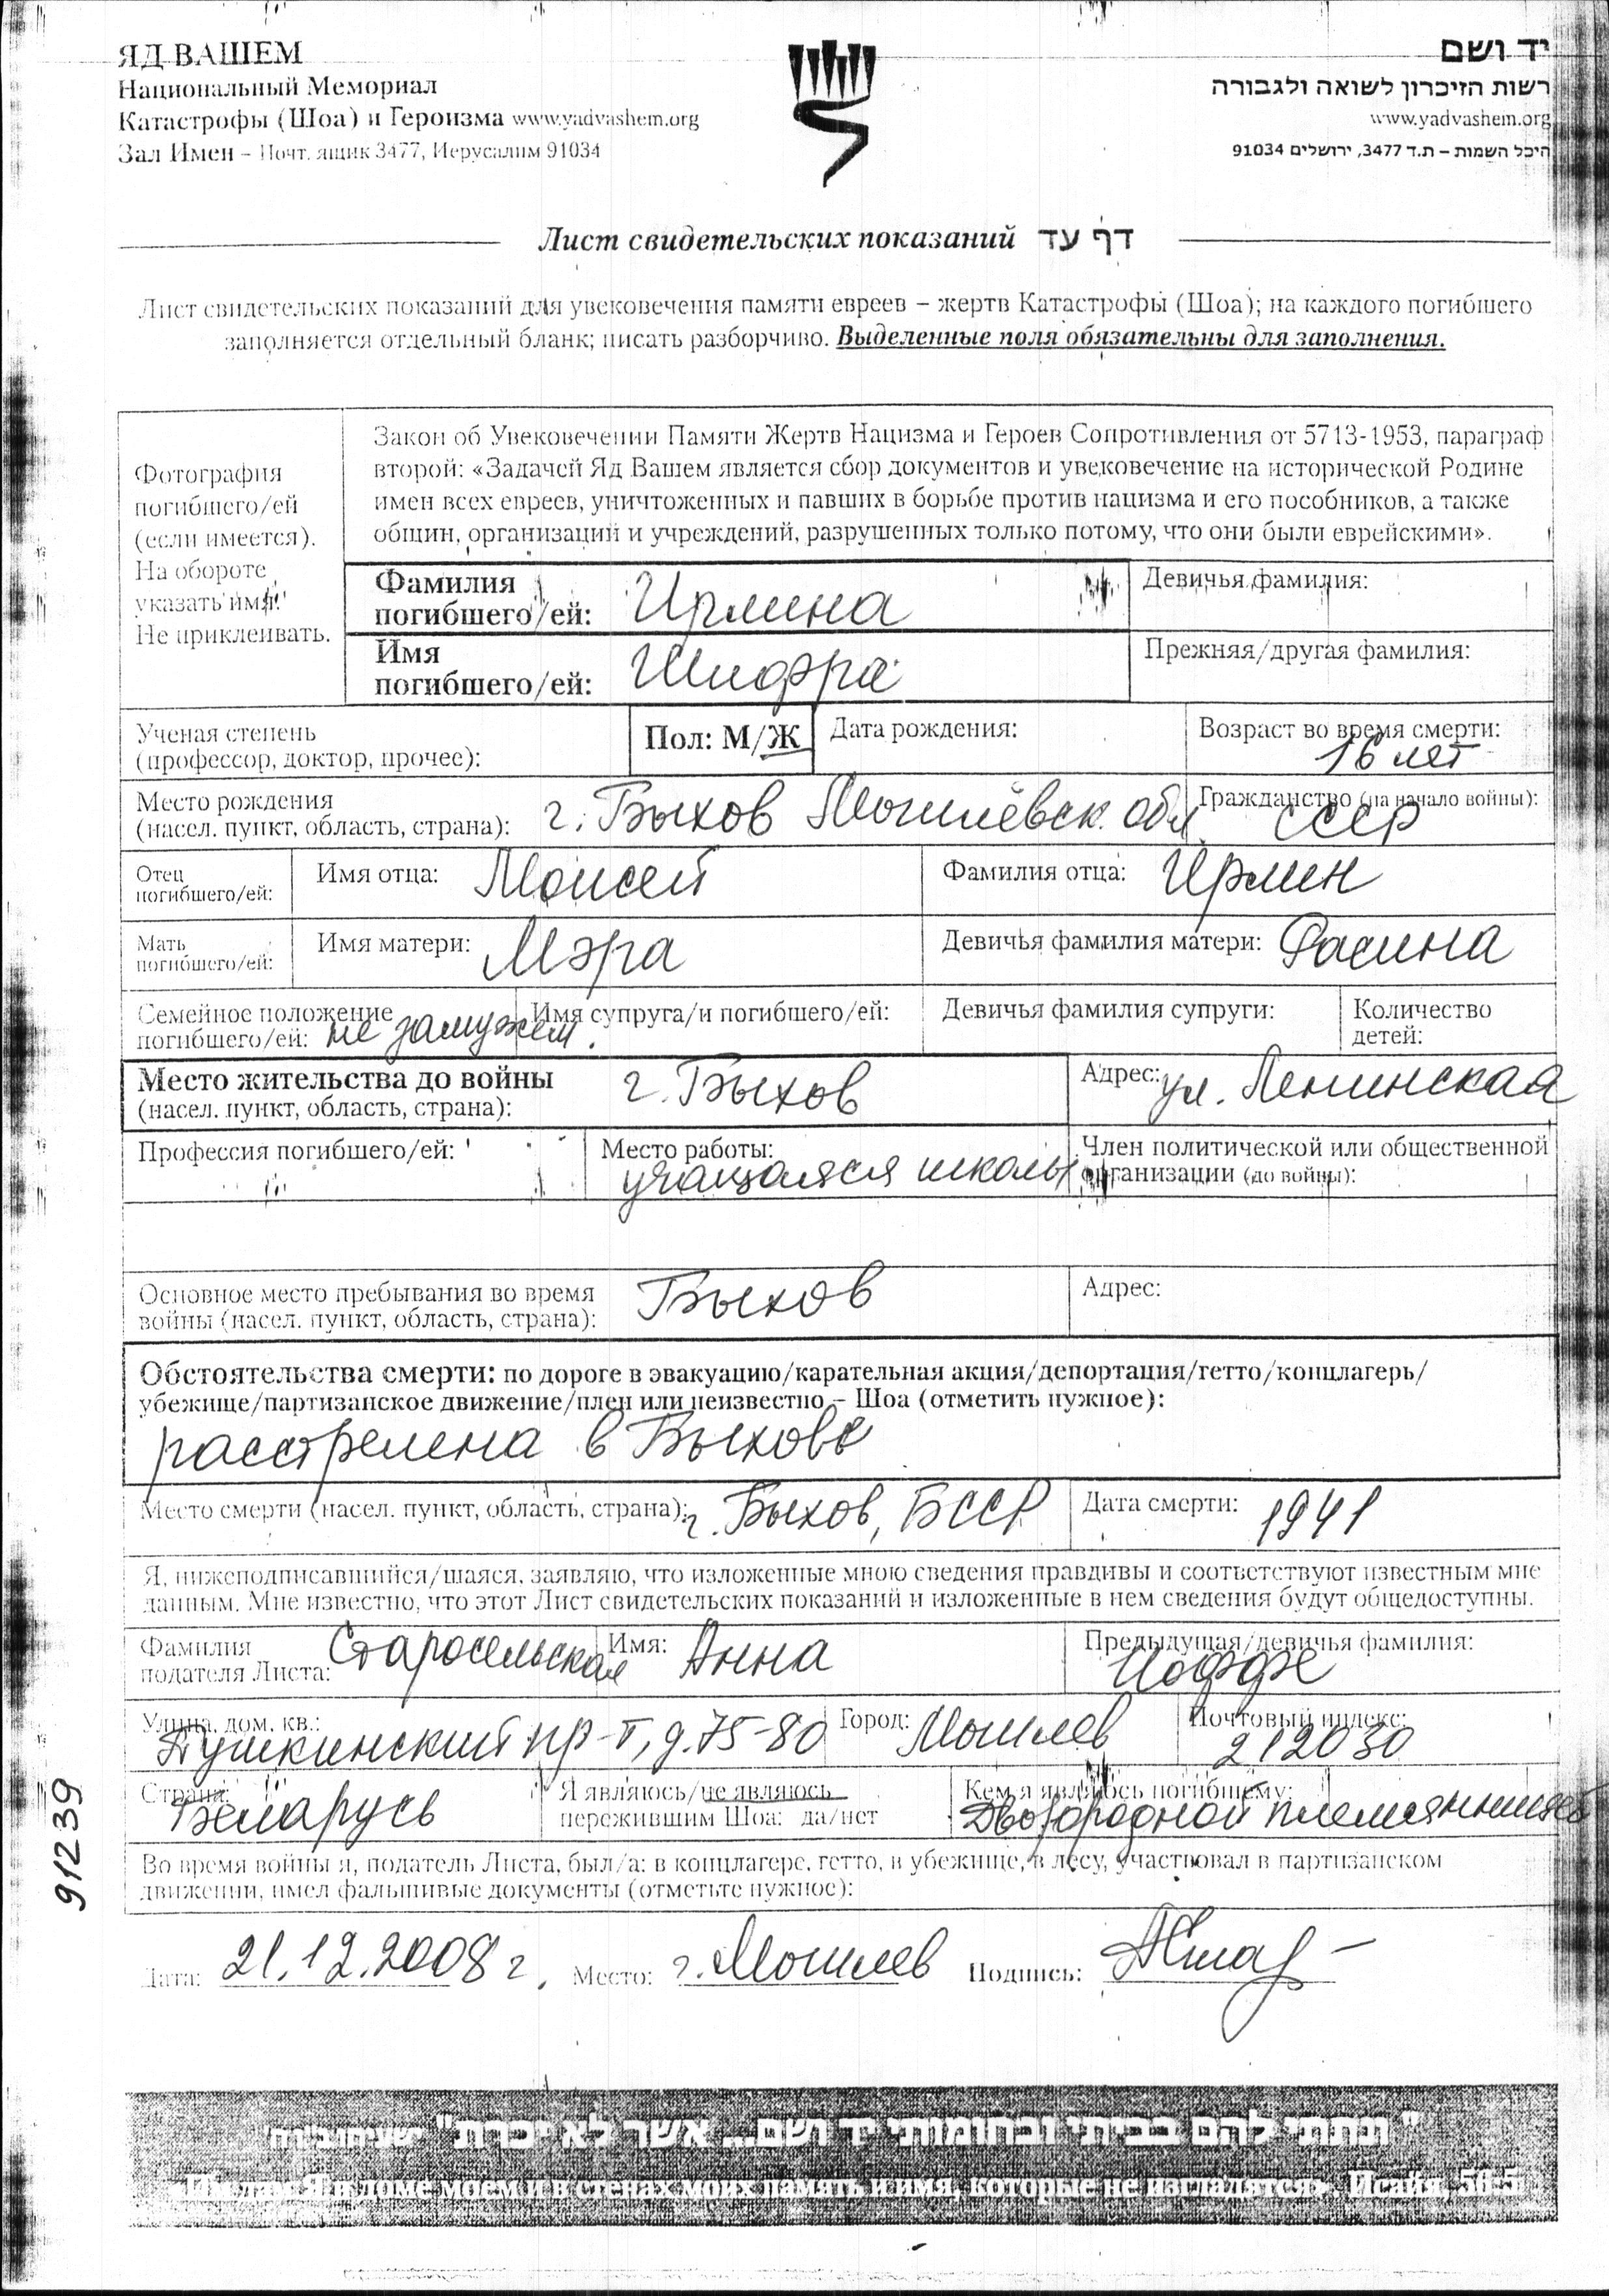 ЯД ВАШЕМ
Национальный Мемориал
Катастрофы (Шоа) и Героизма www.yadvashem.org
Зал Имен – Почт. ящик 3477, Иерусалим 91034
יד ושם
רשות הזיכרון לשואה ולגבורה
www.yadvashem.org
היכל השמות – ת.ד 3477, ירושלים 91034
Лист свидетельских показаний דף עד
Лист свидетельских показаний для увековечения памяти евреев – жертв Катастрофы (Шоа); на каждого погибшего
заполняется отдельный бланк; писать разборчиво. Выделенные поля обязательны для заполнения.
Фотография
погибшего/ей
(если имеется).
На обороте
указать имя!
Не приклеивать.
Закон об Увековечении Памяти Жертв Нацизма и Героев Сопротивления от 5713-1953, параграф
второй: «Задачей Яд Вашем является сбор документов и увековечение на исторической Родине
имен всех евреев, уничтоженных и павших в борьбе против нацизма и его пособников, а также
общин, организаций и учреждений, разрушенных только потому, что они были еврейскими».
Фамилия
погибшего/ей: Ирлина
Девичья фамилия:
Имя
погибшего/ей: Шифра
Прежняя/другая фамилия:
Ученая степень
(профессор, доктор, прочее):
Пол: М/Ж
Дата рождения:
Возраст во время смерти:
16 лет
Место рождения
(насел. пункт, область, страна): г. Быхов Могилёвск. обл.
Гражданство (на начало войны):
СССР
Отец
погибшего/ей:
Имя отца: Моисей
Фамилия отца: Ирлин
Мать
погибшего/ей:
Имя матери: Мэра
Девичья фамилия матери: Фасина
Семейное положение
погибшего/ей: не замужем.
Имя супруга/и погибшего/ей:
Девичья фамилия супруги:
Количество
детей:
Место жительства до войны
(насел. пункт, область, страна): г. Быхов
Адрес: ул. Ленинская
Профессия погибшего/ей:
Место работы:
учащаяся школы
Член политической или общественной
организации (до войны):
Основное место пребывания во время
войны (насел. пункт, область, страна): Быхов
Адрес:
Обстоятельства смерти: по дороге в эвакуацию/карательная акция/депортация/гетто/концлагерь/
убежище/партизанское движение/плен или неизвестно – Шоа (отметить нужное):
расстрелена в Быхове
Место смерти (насел. пункт, область, страна): г. Быхов, БССР
Дата смерти: 1941
Я, нижеподписавшийся/шаяся, заявляю, что изложенные мною сведения правдивы и соответствуют известным мне
данным. Мне известно, что этот Лист свидетельских показаний и изложенные в нем сведения будут общедоступны.
Фамилия
подателя Листа: Старосельская
Имя: Анна
Предыдущая/девичья фамилия:
Иоффе
Улица, дом, кв.:
Пушкинский пр-т, д. 75-80
Город: Могилев
Почтовый индекс:
212030
Страна:
Беларусь
Я являюсь/не являюсь
пережившим Шоа: да/нет
Кем я являюсь погибшему:
Двоюродной племянницей
Во время войны я, податель Листа, был/а: в концлагере, гетто, в убежище, в лесу, участвовал в партизанском
движении, имел фальшивые документы (отметьте нужное):
Дата: 21.12.2008 г. Место: г. Могилев Подпись:
91239
"ונתתי להם בביתי ובחומותי יד ושם... אשר לא יכרת" ישעיהו נו ה
«И дам Я в доме моем и в стенах моих память и имя, которые не изгладятся». Исайя, 56:5